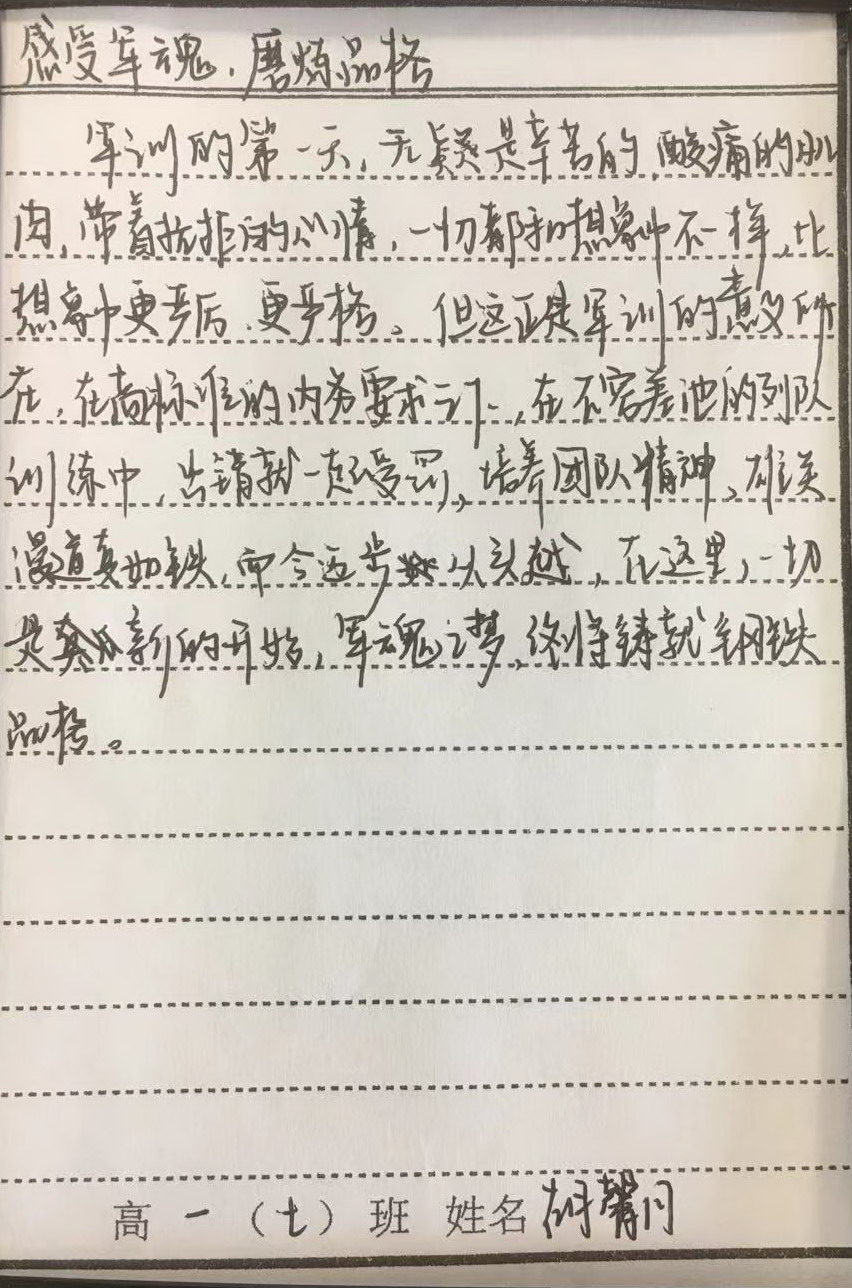 感受军魂，磨炼品格
军训的第一天，无疑是辛苦的，酸痛的肌
肉，带着抗拒的心情，一切都和想象中不一样，比
想象中更严厉、更严格。但这正是军训的意义所
在，在高标准的内务要求之下，在不容差池的列队
训练中，出错就一起受罚，培养团队精神，雄关
漫道真如铁，而今迈步从头越，在这里，一切
是新的开始，军魂之梦，终将铸就钢铁
品格。
高一（七）班 姓名 胡馨月